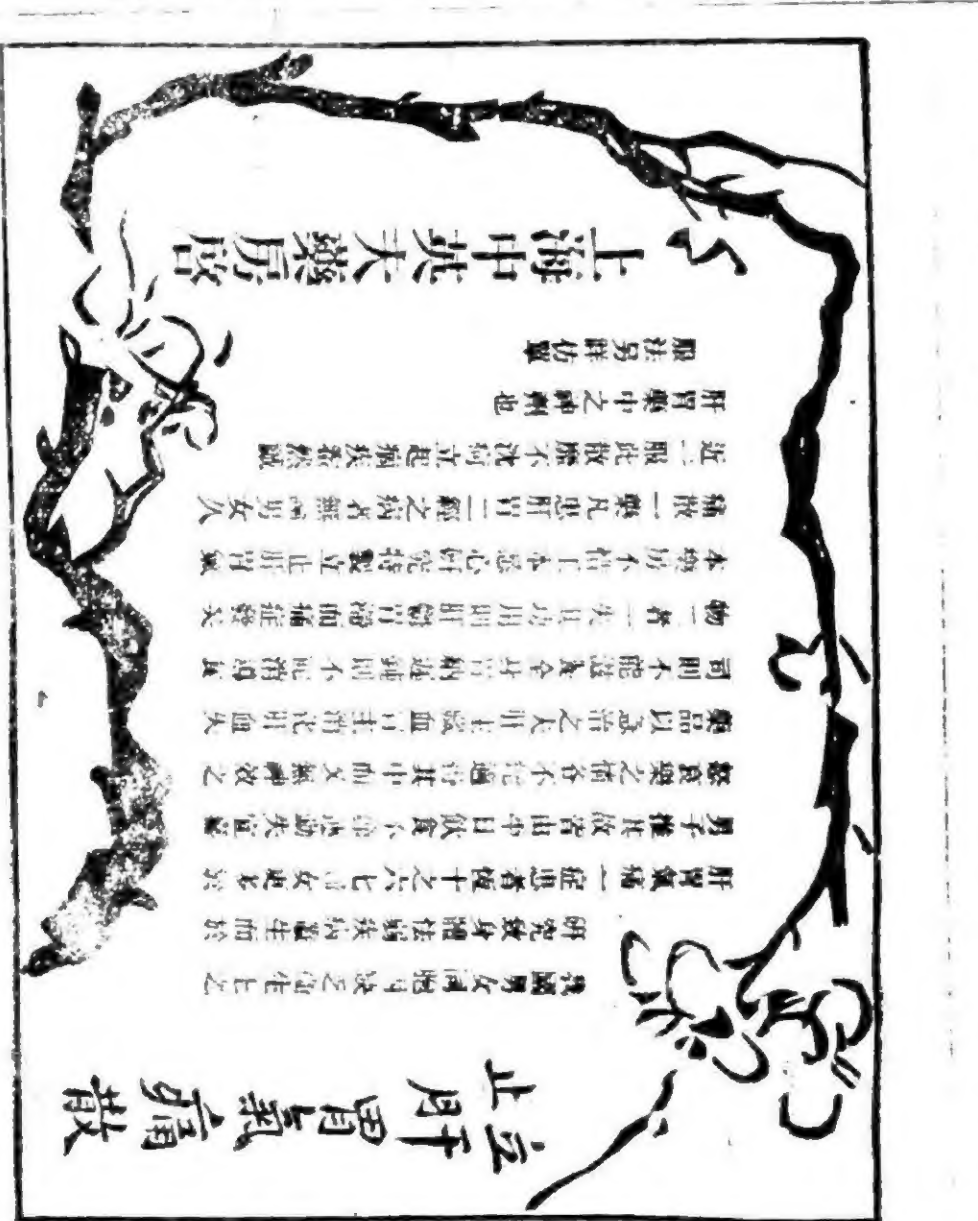 立止肝胃氣痛散
我國男女同胞缺乏衛生上之
研究致身體怯弱疾病叢生而於
肝胃氣痛一症患者恆十之六七而女更多於
男子推其故皆由平日飲食不節勞動失宜
怒哀樂之情不能得其中而又無神效之
藥品以急治之夫肝主藏血胃主消化肝血失
司則不能滋養全身胃納遲鈍則不能消
物二者一失其功用則肝鬱胃滯而痛症發矣
本藥房不惜工本悉心研究特製立止肝胃氣
痛散一藥凡患肝胃二經之病者無論男女久
近一服此散應不沉疴立起痼疾若誠
肝胃藥中之神劑也
服法另詳仿單
上海中英大藥房啓